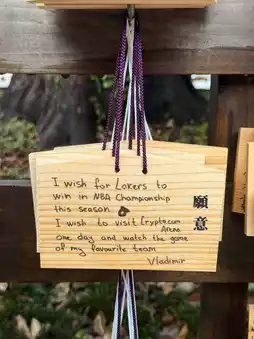 I wish for Lakers to
win in NBA Championship
this season.
I wish to visit Crypto.com
Arena
one day and watch the game
of my favourite team
Vladimir
願意